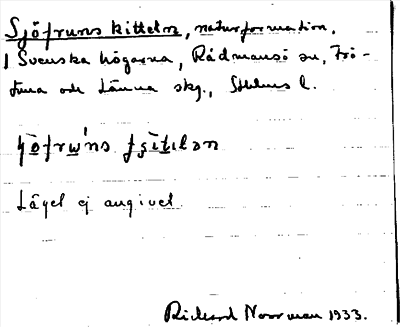 Sjöfruns kitteln, naturformation,
Svenska högarna, Rådmansö sn, Frö-
tuna och Länna skg., Sthlms l.
Läget ej angivet.
Rickard Noorman 1933.